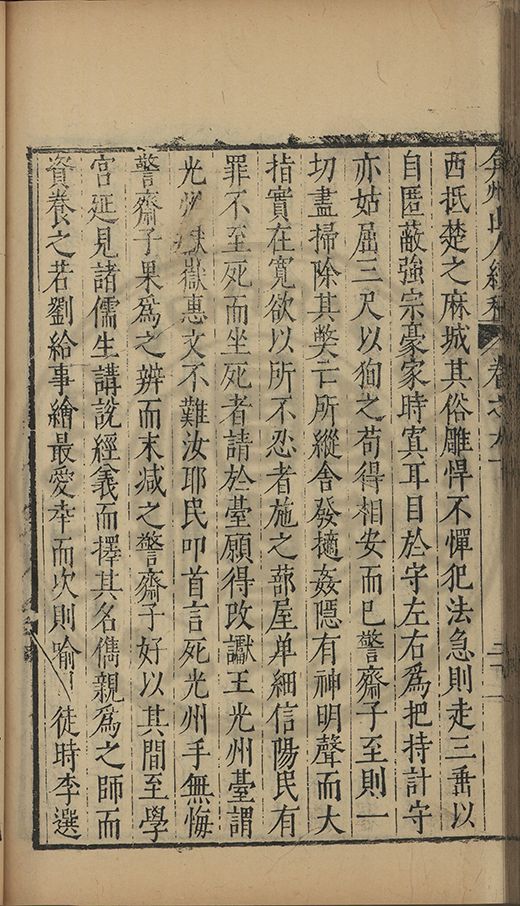 弇州山人續稿 卷之九十 二十一
西抵楚之麻城其俗雕悍不憚犯法急則走三垂以
自匿蔽強宗豪家時寘耳目於守左右爲把持計守
亦姑屈三尺以狥之苟得相安而已警齋子至則一
切盡掃除其獘亡所縱舍發擿姦隱有神明聲而大
指實在寬欲以所不忍者施之蔀屋单細信陽民有
罪不至死而坐死者請於臺願得改讞王光州臺謂
光州獄惠文不難汝耶民叩首言死光州手無悔
警齋子果爲之辨而末减之警齋子好以其間至學
宮延見諸儒生講說經義而擇其名儁親爲之師而
資養之若劉給事繪最愛幸而次則喻 徒時李選